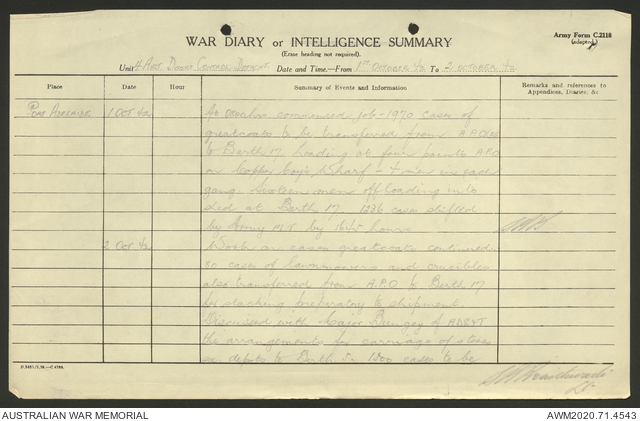 WAR DIARY or INTELLIGENCE SUMMARY
(Erase heading not required).
Army Form C.2118
(adapted)
Unit 4 Aust. Docks Control Date and Time.—From 1st October 42 To 2 October 42
Place Date Hour Summary of Events and Information Remarks and references to Appendices, Diaries, &c
Port Adelaide 1 Oct 42 At commenced job - 1970 cases of
greatcoats to be transferred from A.P.O
to Berth 17 loading at four points A.P.O
on Copper Co's Wharf - 4 men in each
gang. Sixteen mens offloading into
shed at Berth 17 1236 cases shifted
by Army M.T by 1645 hours
2 Oct 42 Work on cases greatcoats continued
80 cases of lawnmowers and crucibles
also transferred from A.P.O to Berth 17
for stacking preparatory to shipment.
Discussed with Major of
the arrangements for carriage of stores
on depots to Berth 1500 cases to be
AUSTRALIAN WAR MEMORIAL
AWM2020.71.4543